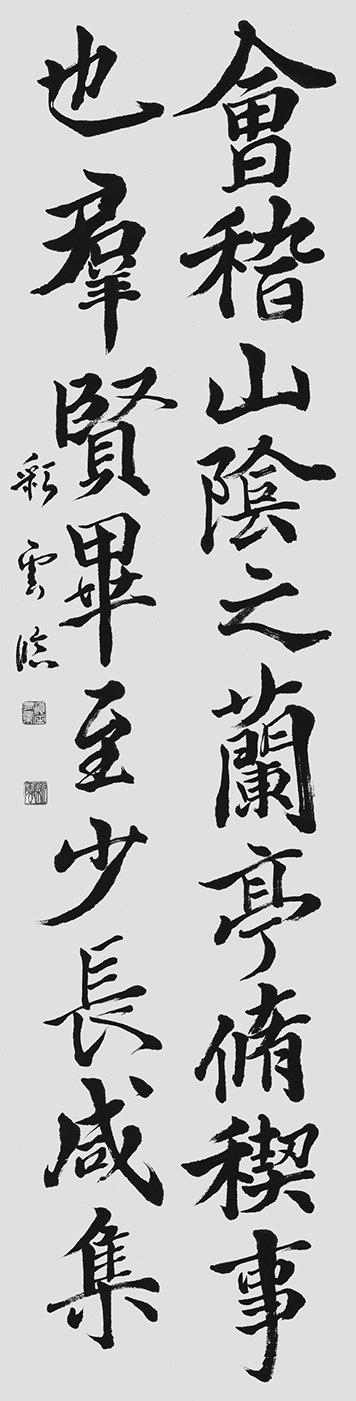 會稽山陰之蘭亭脩稧事
也羣賢畢至少長咸集
彩雲臨